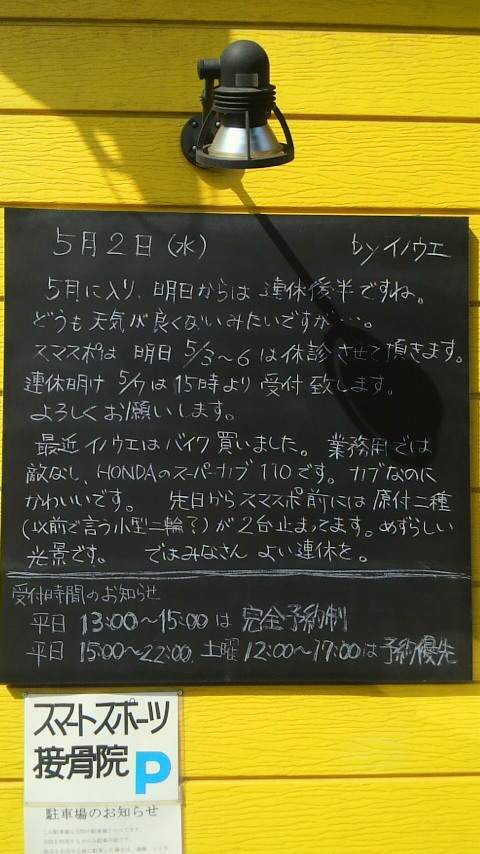 5月2日(水) byイノウエ
5月に入り、明日からは連休後半ですね。
どうも天気が良くないみたいですが・・・。
スマスポは明日5/3~6は休診させて頂きます。
連休明け5/7は15時より受付致します。
よろしくお願いします。
最近イノウエはバイク買いました。業務用では
敵なし、HONDAのスーパーカブ110です。カブなのに
かわいいです。 先日からスマスポ前には原付二種
(以前で言う小型二輪?)が2台止まってます。めずらしい
光景です。 ではみなさん よい連休を。
受付時間のお知らせ
平日 13:00~15:00は 完全予約制
平日 15:00~22:00, 土曜 12:00~17:00は予約優先
スマートスポーツ
接骨院 P
駐車場のお知らせ